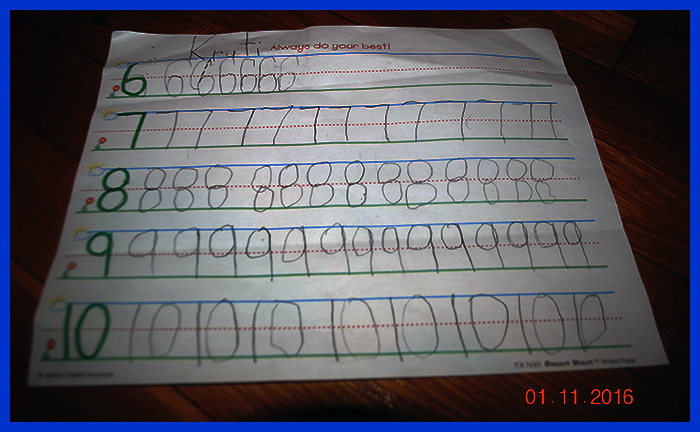 Kruti Always do your best!
6 6 6 6 6 6 6
7 7 7 7 7 7 7 7 7 7 7 7 7
8 8 8 8 8 8 8 8 8 8 8 8 8 8
9 9 9 9 9 9 9 9 9 9 9 9 9 9 9
10 10 10 10 10 10 10 10 10
© Teacher Created Resources TCR Smart Start™ Writing Paper
01.11.2016